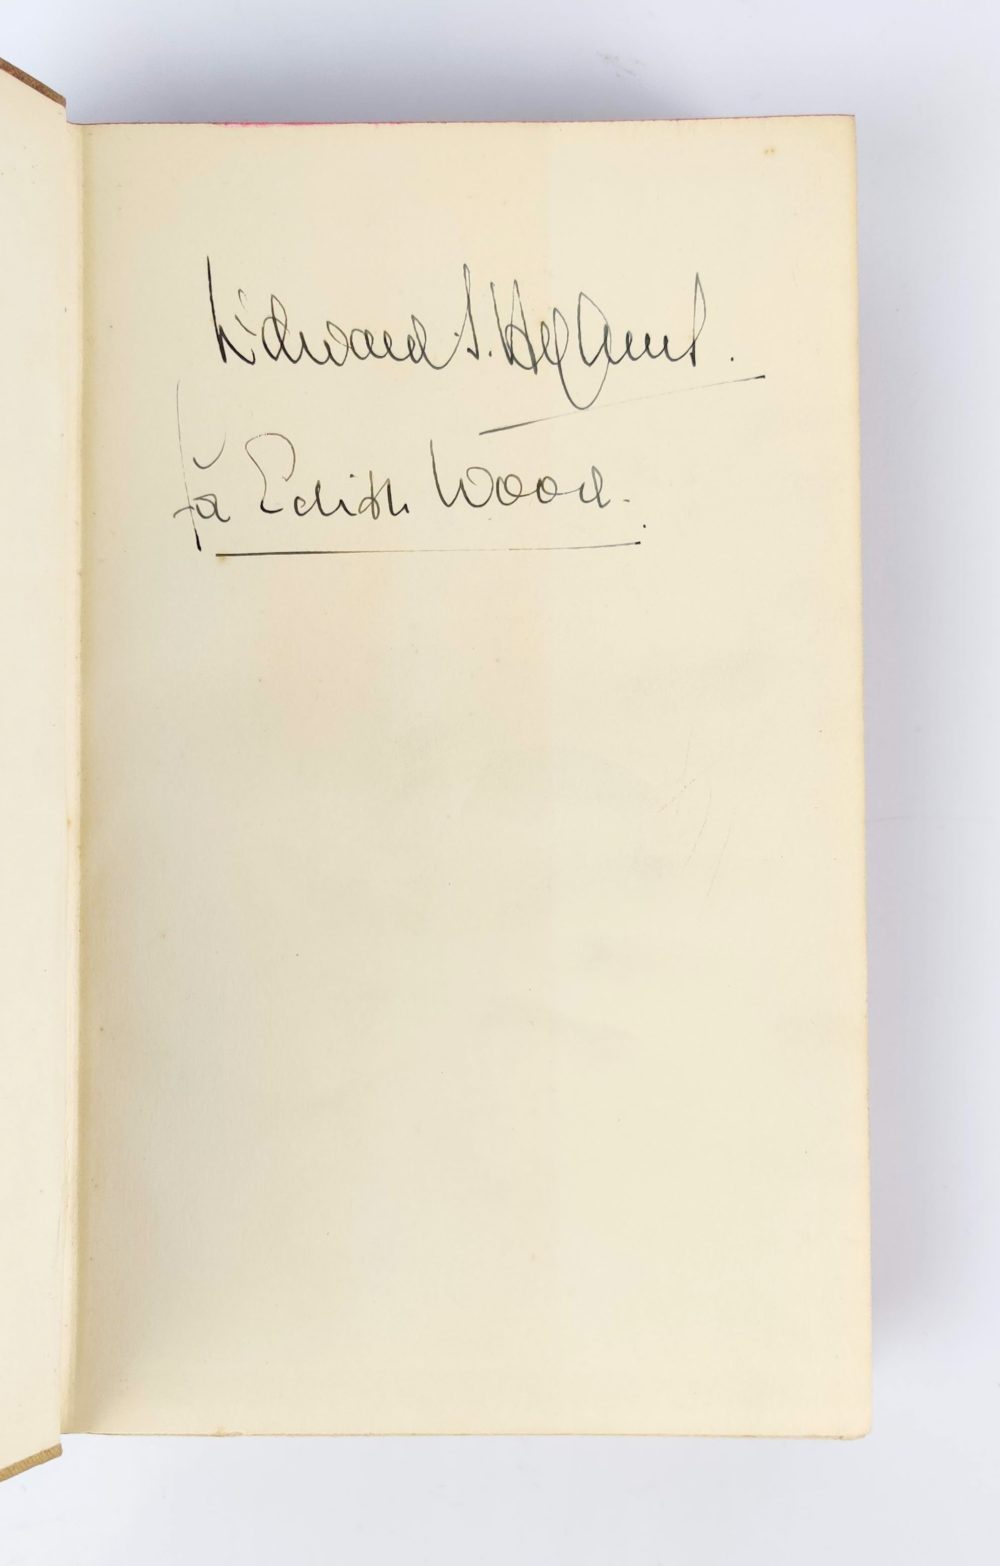 Edward S. Hyams.
for Edith Wood.